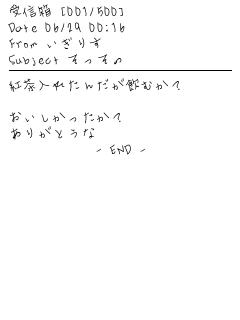 受信箱 [001/500]
Date 06/29 00:16
From いぎりす
Subject そっその
紅茶入れたんだが飲むかて
おいしかったかて
ありがとうな
- END -